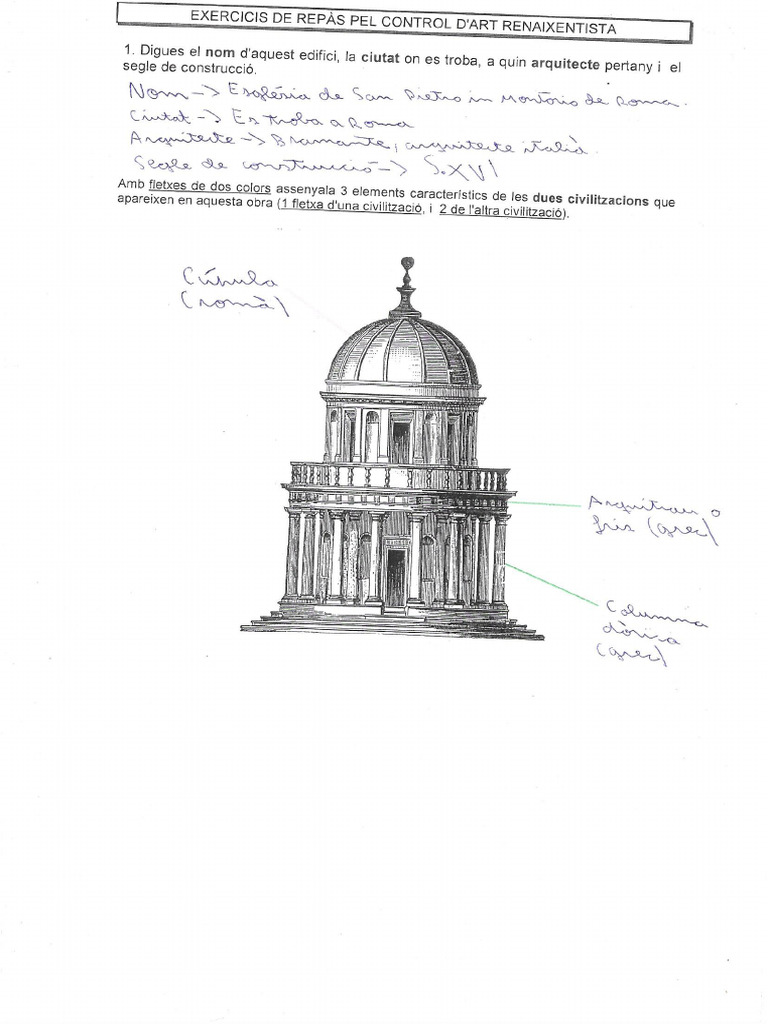 EXERCICIS DE REPÀS PEL CONTROL D'ART RENAIXENTISTA
1. Digues el nom d'aquest edifici, la ciutat on es troba, a quin arquitecte pertany i el
segle de construcció.
Nom -> Església de San Pietro in Montorio de Roma.
Ciutat -> Es troba a Roma
Arquitecte -> Bramante, arquitecte italià.
Segle de construcció -> S.XVI
Amb fletxes de dos colors assenyala 3 elements característics de les dues civilitzacions que
apareixen en aquesta obra (1 fletxa d'una civilització, i 2 de l'altra civilització).
Cúpula
(romà)
Arquitrau o
fris (grec)
Columna
dòrica
(grec)